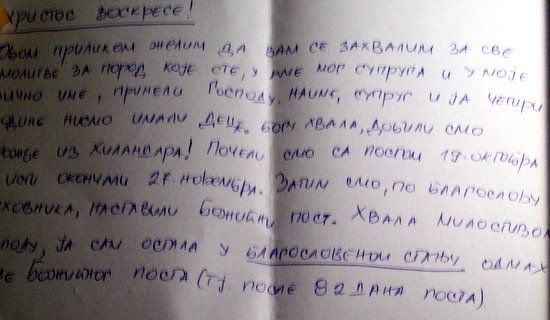 Христос Воскресе!
Овом приликом желим да вам се захвалим за све
молитве за пород које сте, у име мог супруга и у моје
лично име, принели Господу. Наиме, супруг и ја четири
године нисмо имали децу. Богу хвала, добили смо
из Хиландара! Почели смо са постом 19. октобра
и исти окончали 27. новембра. Затим смо, по благослову
духовника, наставили Божићни пост. Хвала милостивом
Господу, ја сам остала у благословеном стању одмах
Божићног поста (тј. после 82 дана поста)